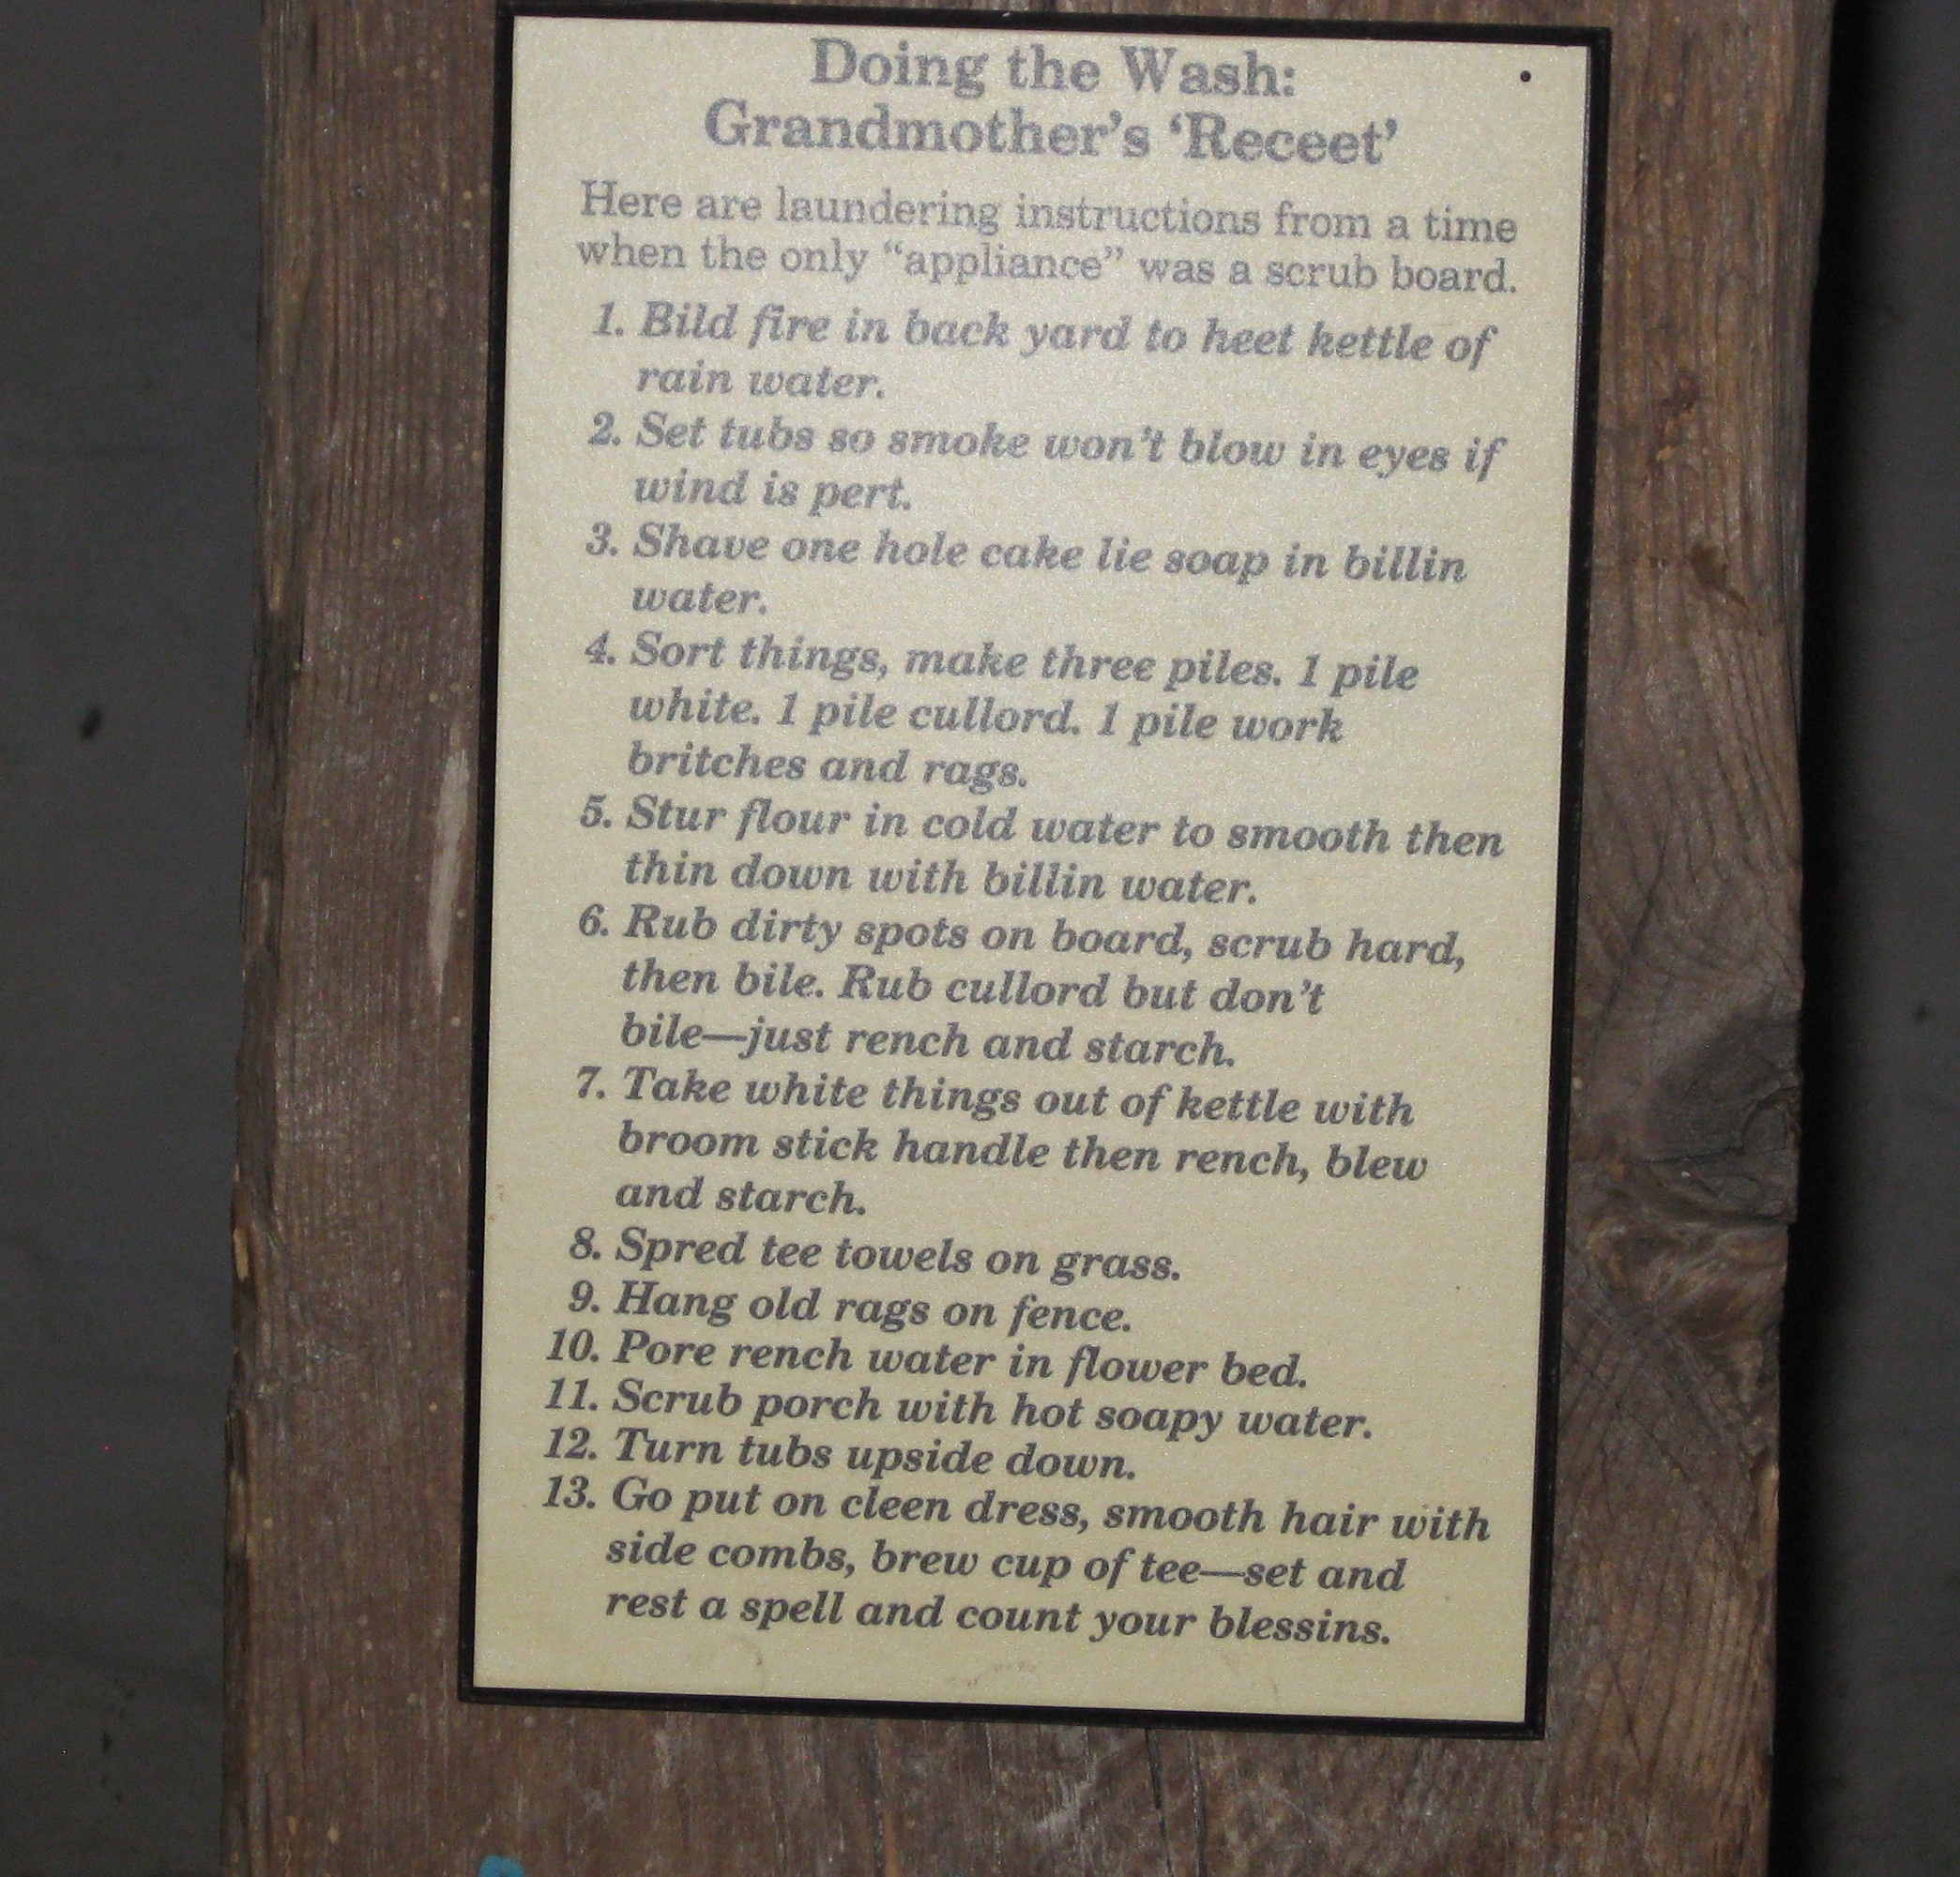 Doing the Wash:
Grandmother's ‘Receet’
Here are laundering instructions from a time
when the only “appliance” was a scrub board.
1. Bild fire in back yard to heet kettle of
rain water.
2. Set tubs so smoke won't blow in eyes if
wind is pert.
3. Shave one hole cake lie soap in billin
water.
4. Sort things, make three piles. 1 pile
white. 1 pile cullord. 1 pile work
britches and rags.
5. Stur flour in cold water to smooth then
thin down with billin water.
6. Rub dirty spots on board, scrub hard,
then bile. Rub cullord but don't
bile—just rench and starch.
7. Take white things out of kettle with
broom stick handle then rench, blew
and starch.
8. Spred tee towels on grass.
9. Hang old rags on fence.
10. Pore rench water in flower bed.
11. Scrub porch with hot soapy water.
12. Turn tubs upside down.
13. Go put on cleen dress, smooth hair with
side combs, brew cup of tee—set and
rest a spell and count your blessins.